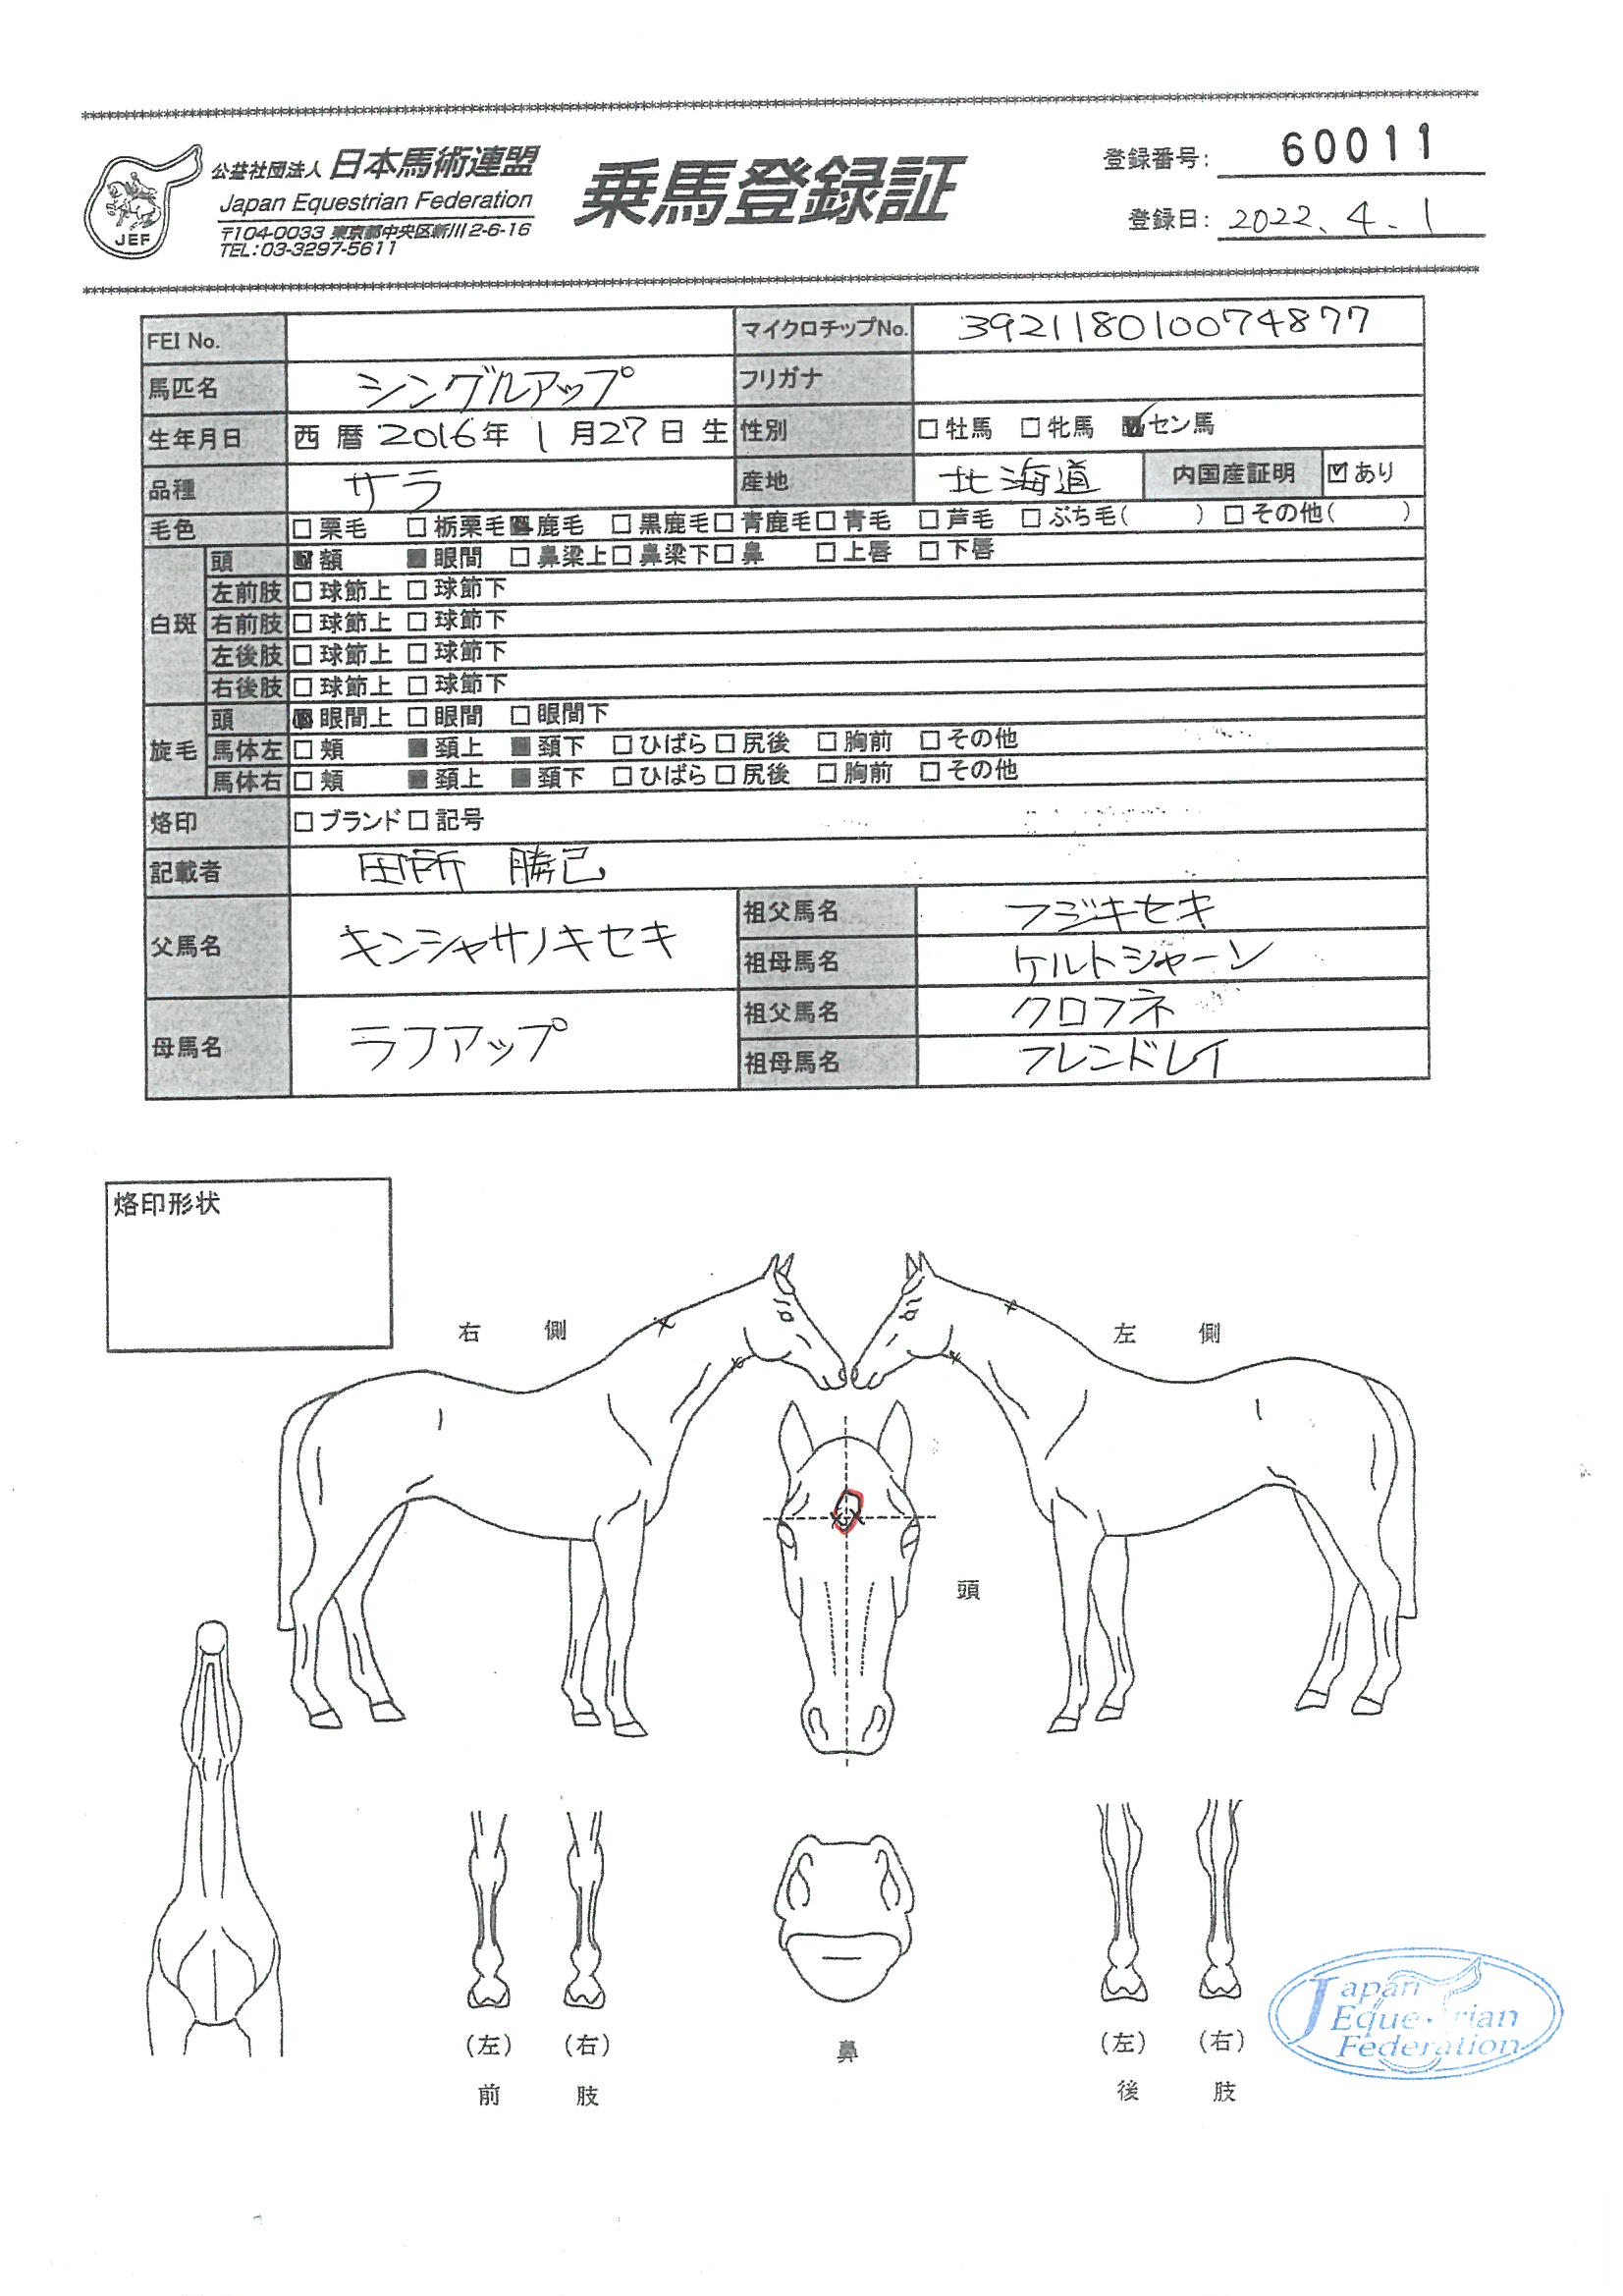 公益社団法人 日本馬術連盟
Japan Equestrian Federation
〒104-0033 東京都中央区新川2-6-16
TEL:03-3297-5611
JEF
乗馬登録証
登録番号: 60011
登録日: 2022.4.1
FEI No. マイクロチップNo. 392118010074877
馬匹名 シングルアップ フリガナ
生年月日 西暦2016年1月27日生 性別 □牡馬 □牝馬 ☑セン馬
品種 サラ 産地 北海道 内国産証明 ☑あり
毛色 □栗毛 □栃栗毛 ■鹿毛 □黒鹿毛 □青鹿毛 □青毛 □芦毛 □ぶち毛( ) □その他( )
白斑 頭 ■額 ■眼間 □鼻梁上 □鼻梁下 □鼻 □上唇 □下唇
左前肢 □球節上 □球節下
右前肢 □球節上 □球節下
左後肢 □球節上 □球節下
右後肢 □球節上 □球節下
旋毛 頭 ■眼間上 □眼間 □眼間下
馬体左 □頬 ■頚上 ■頚下 □ひばら □尻後 □胸前 □その他
馬体右 □頬 ■頚上 ■頚下 □ひばら □尻後 □胸前 □その他
烙印 □ブランド □記号
記載者 田所 勝己
父馬名 キンシャサノキセキ 祖父馬名 フジキセキ
祖母馬名 ケルトシャーン
母馬名 ラフアップ 祖父馬名 クロフネ
祖母馬名 フレンドレイ
烙印形状
右側 左側
頭
(左) (右) 鼻 (左) (右)
前肢 後肢
Japan
Equestrian
Federation